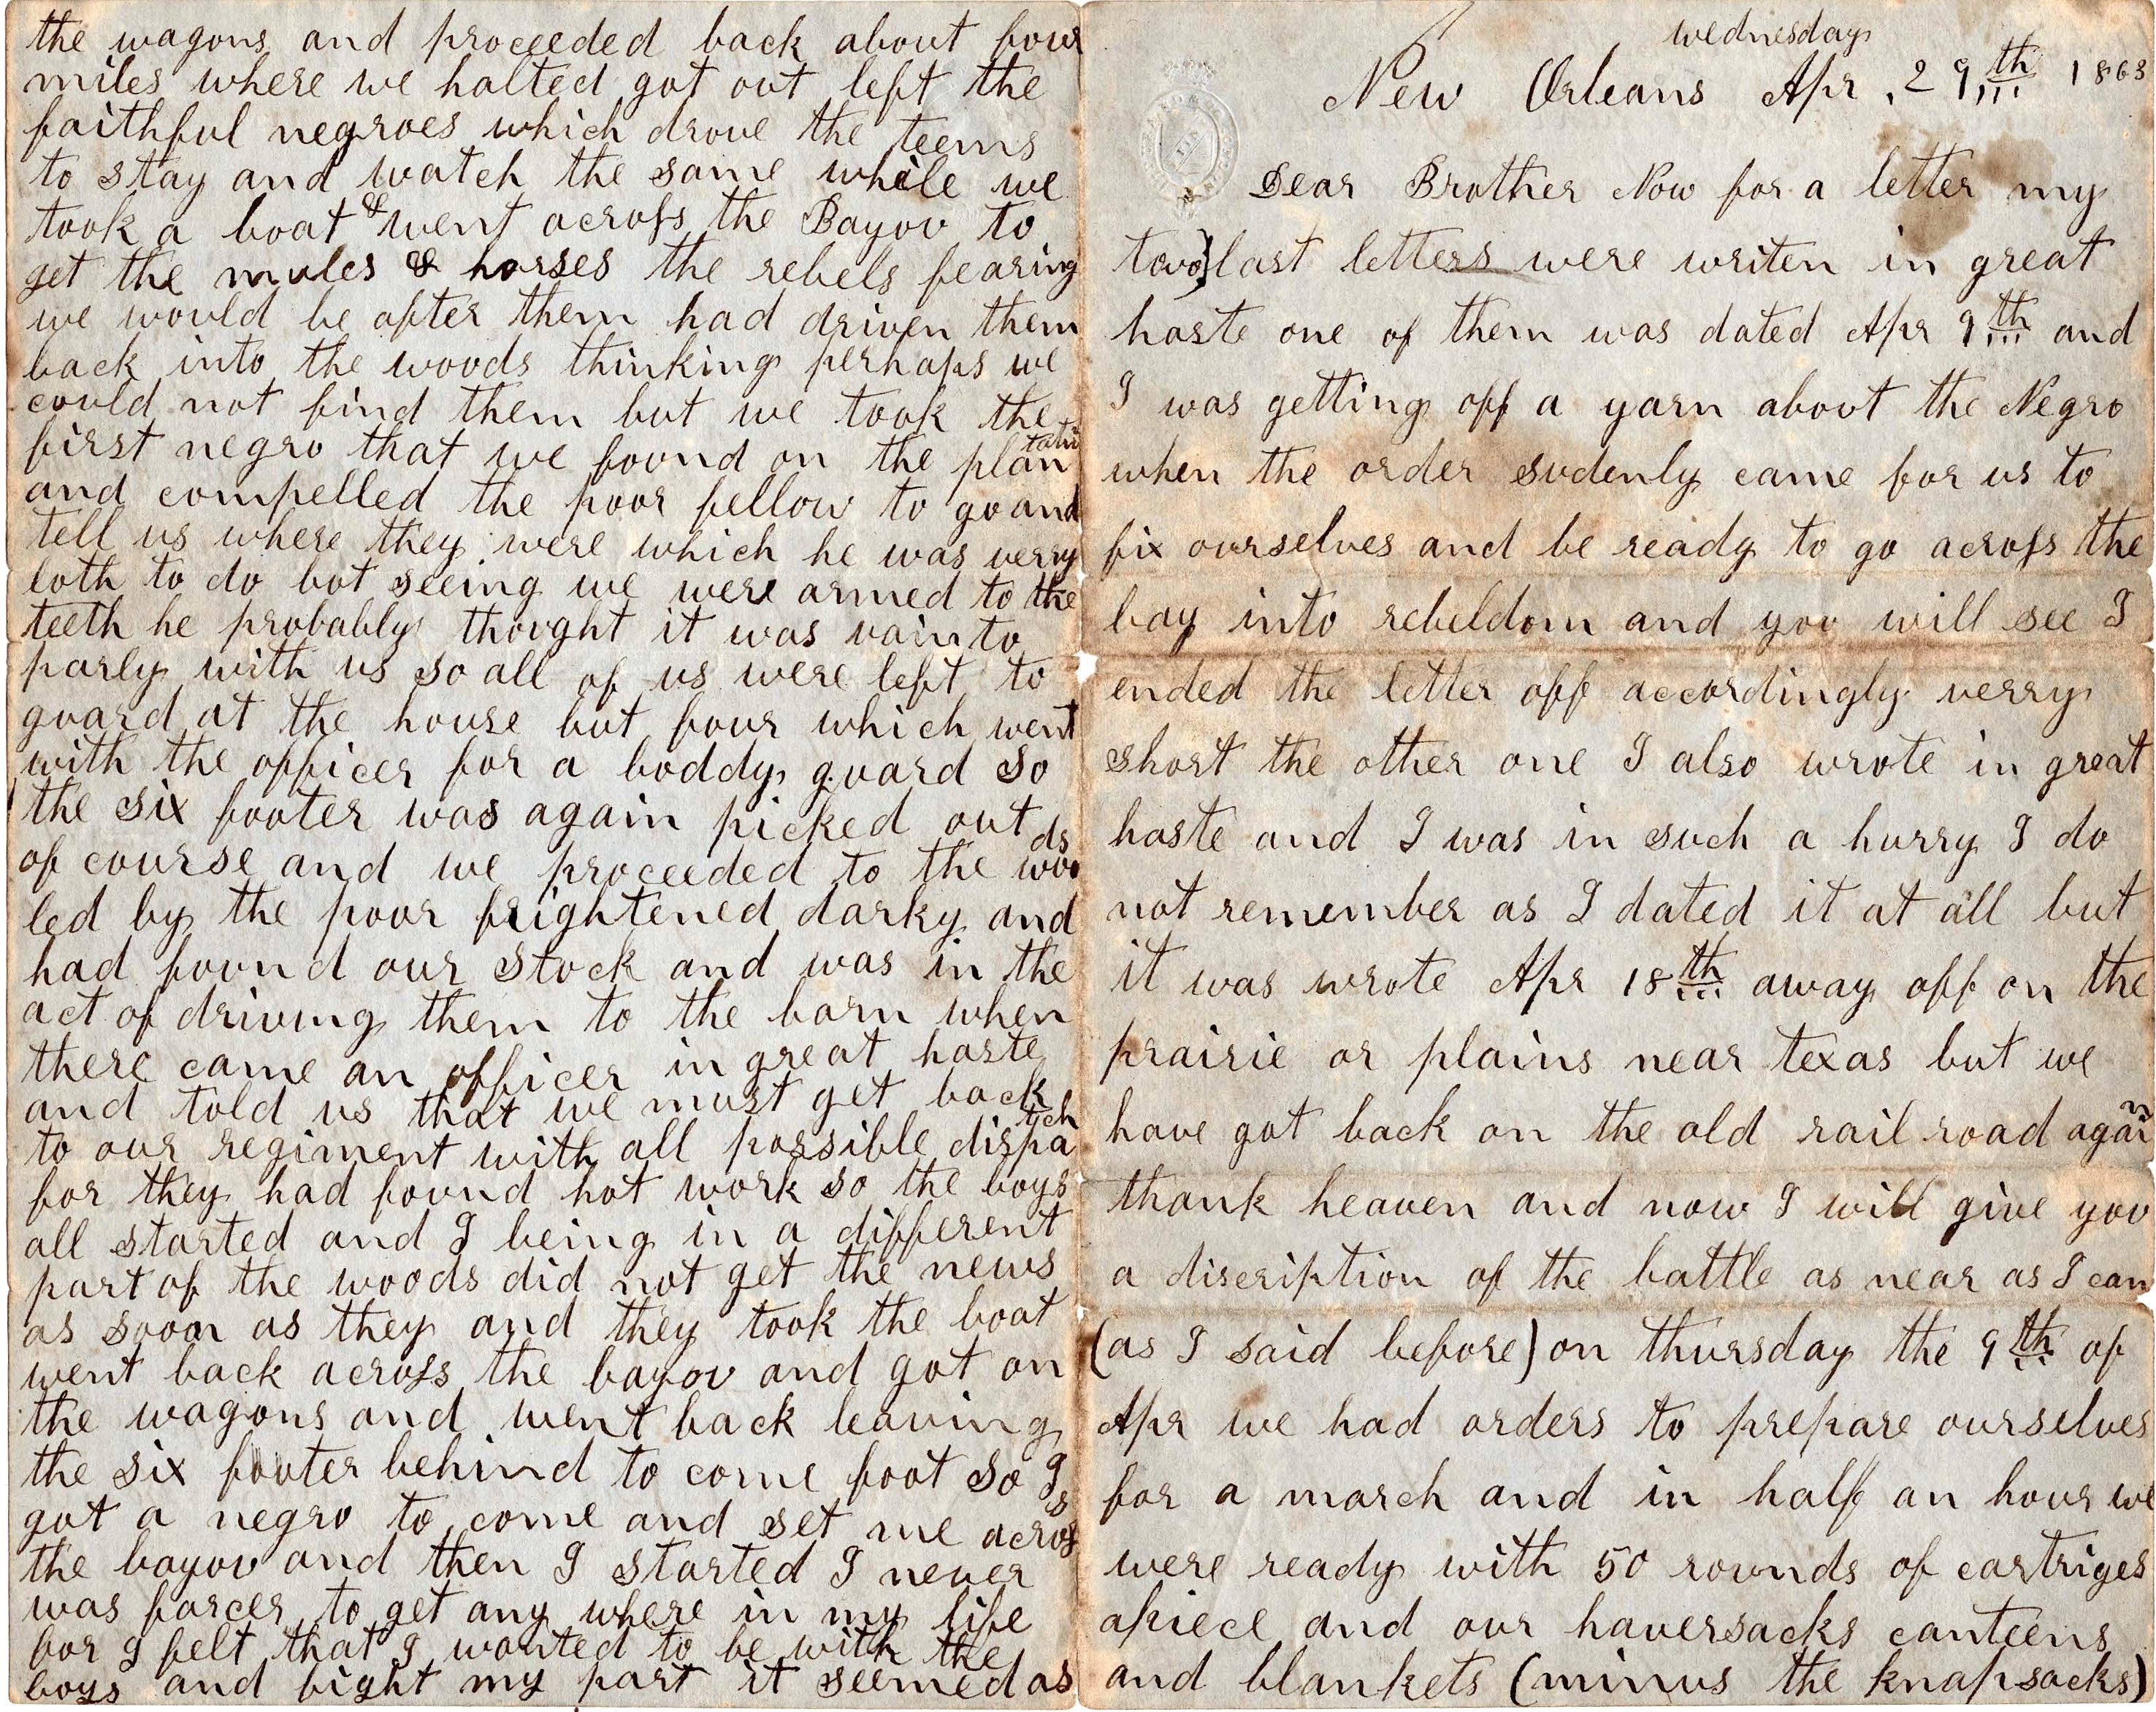 the wagons and proceeded back about four
miles where we halted got out left the
faithful negroes which drove the teems
to stay and watch the same while we
took a boat & went across the Bayou to
get the mules & horses the rebels fearing
we would be after them had driven them
back into the woods thinking perhaps we
could not find them but we took the
first negro that we found on the plantati
and compelled the poor fellow to go and
tell us where they were which he was verry
loth to do but seeing we were armed to the
teeth he probably thought it was vain to
parly with us so all of us were left to
guard at the house but four which went
with the officer for a boddy guard so
the six footer was again picked out
of course and we proceeded to the woods
led by the poor frightened darky and
had found our stock and was in the
act of driving them to the barn when
there came an officer in great haste
and told us that we must get back
to our regiment with all possible dispatch
for they had found hot work so the boys
all started and I being in a different
part of the woods did not get the news
as soon as they and they took the boat
went back across the bayou and got on
the wagons and went back leaving
the six footer behind to come foot so I
got a negro to come and set me across
the bayou and then I started I never
was farcer to get any where in my life
for I felt that I wanted to be with the
boys and fight my part it seemed as
wednesday
New Orleans Apr . 29th 1863
Dear Brother Now for a letter my
two last letters were writen in great
haste one of them was dated Apr 9th and
I was getting off a yarn about the Negro
when the order sudenly came for us to
fix ourselves and be ready to go across the
bay into rebeldom and you will see I
ended the letter off accordingly verry
short the other one I also wrote in great
haste and I was in such a hurry I do
not remember as I dated it at all but
it was wrote Apr 18th away off on the
prairie or plains near texas but we
have got back on the old rail road again
thank heaven and now I will give you
a discription of the battle as near as I can
(as I said before) on thursday the 9th of
Apr we had orders to prepare ourselves
for a march and in half an hour we
were ready with 50 rounds of cartriges
apiece and our haversacks canteens
and blankets (minus the knapsacks)